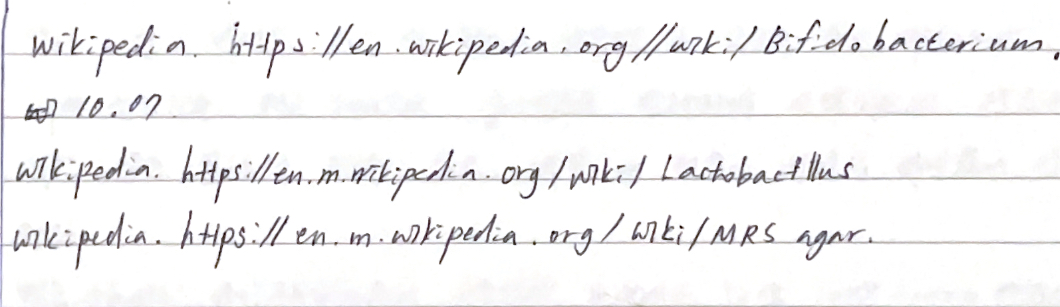 Wikipedia. https://en.wikipedia.org//wiki/Bifidobacterium.
10.07
Wikipedia. https://en.m.wikipedia.org/wiki/Lactobacillus
Wikipedia. https://en.m.wikipedia.org/wiki/MRS agar.